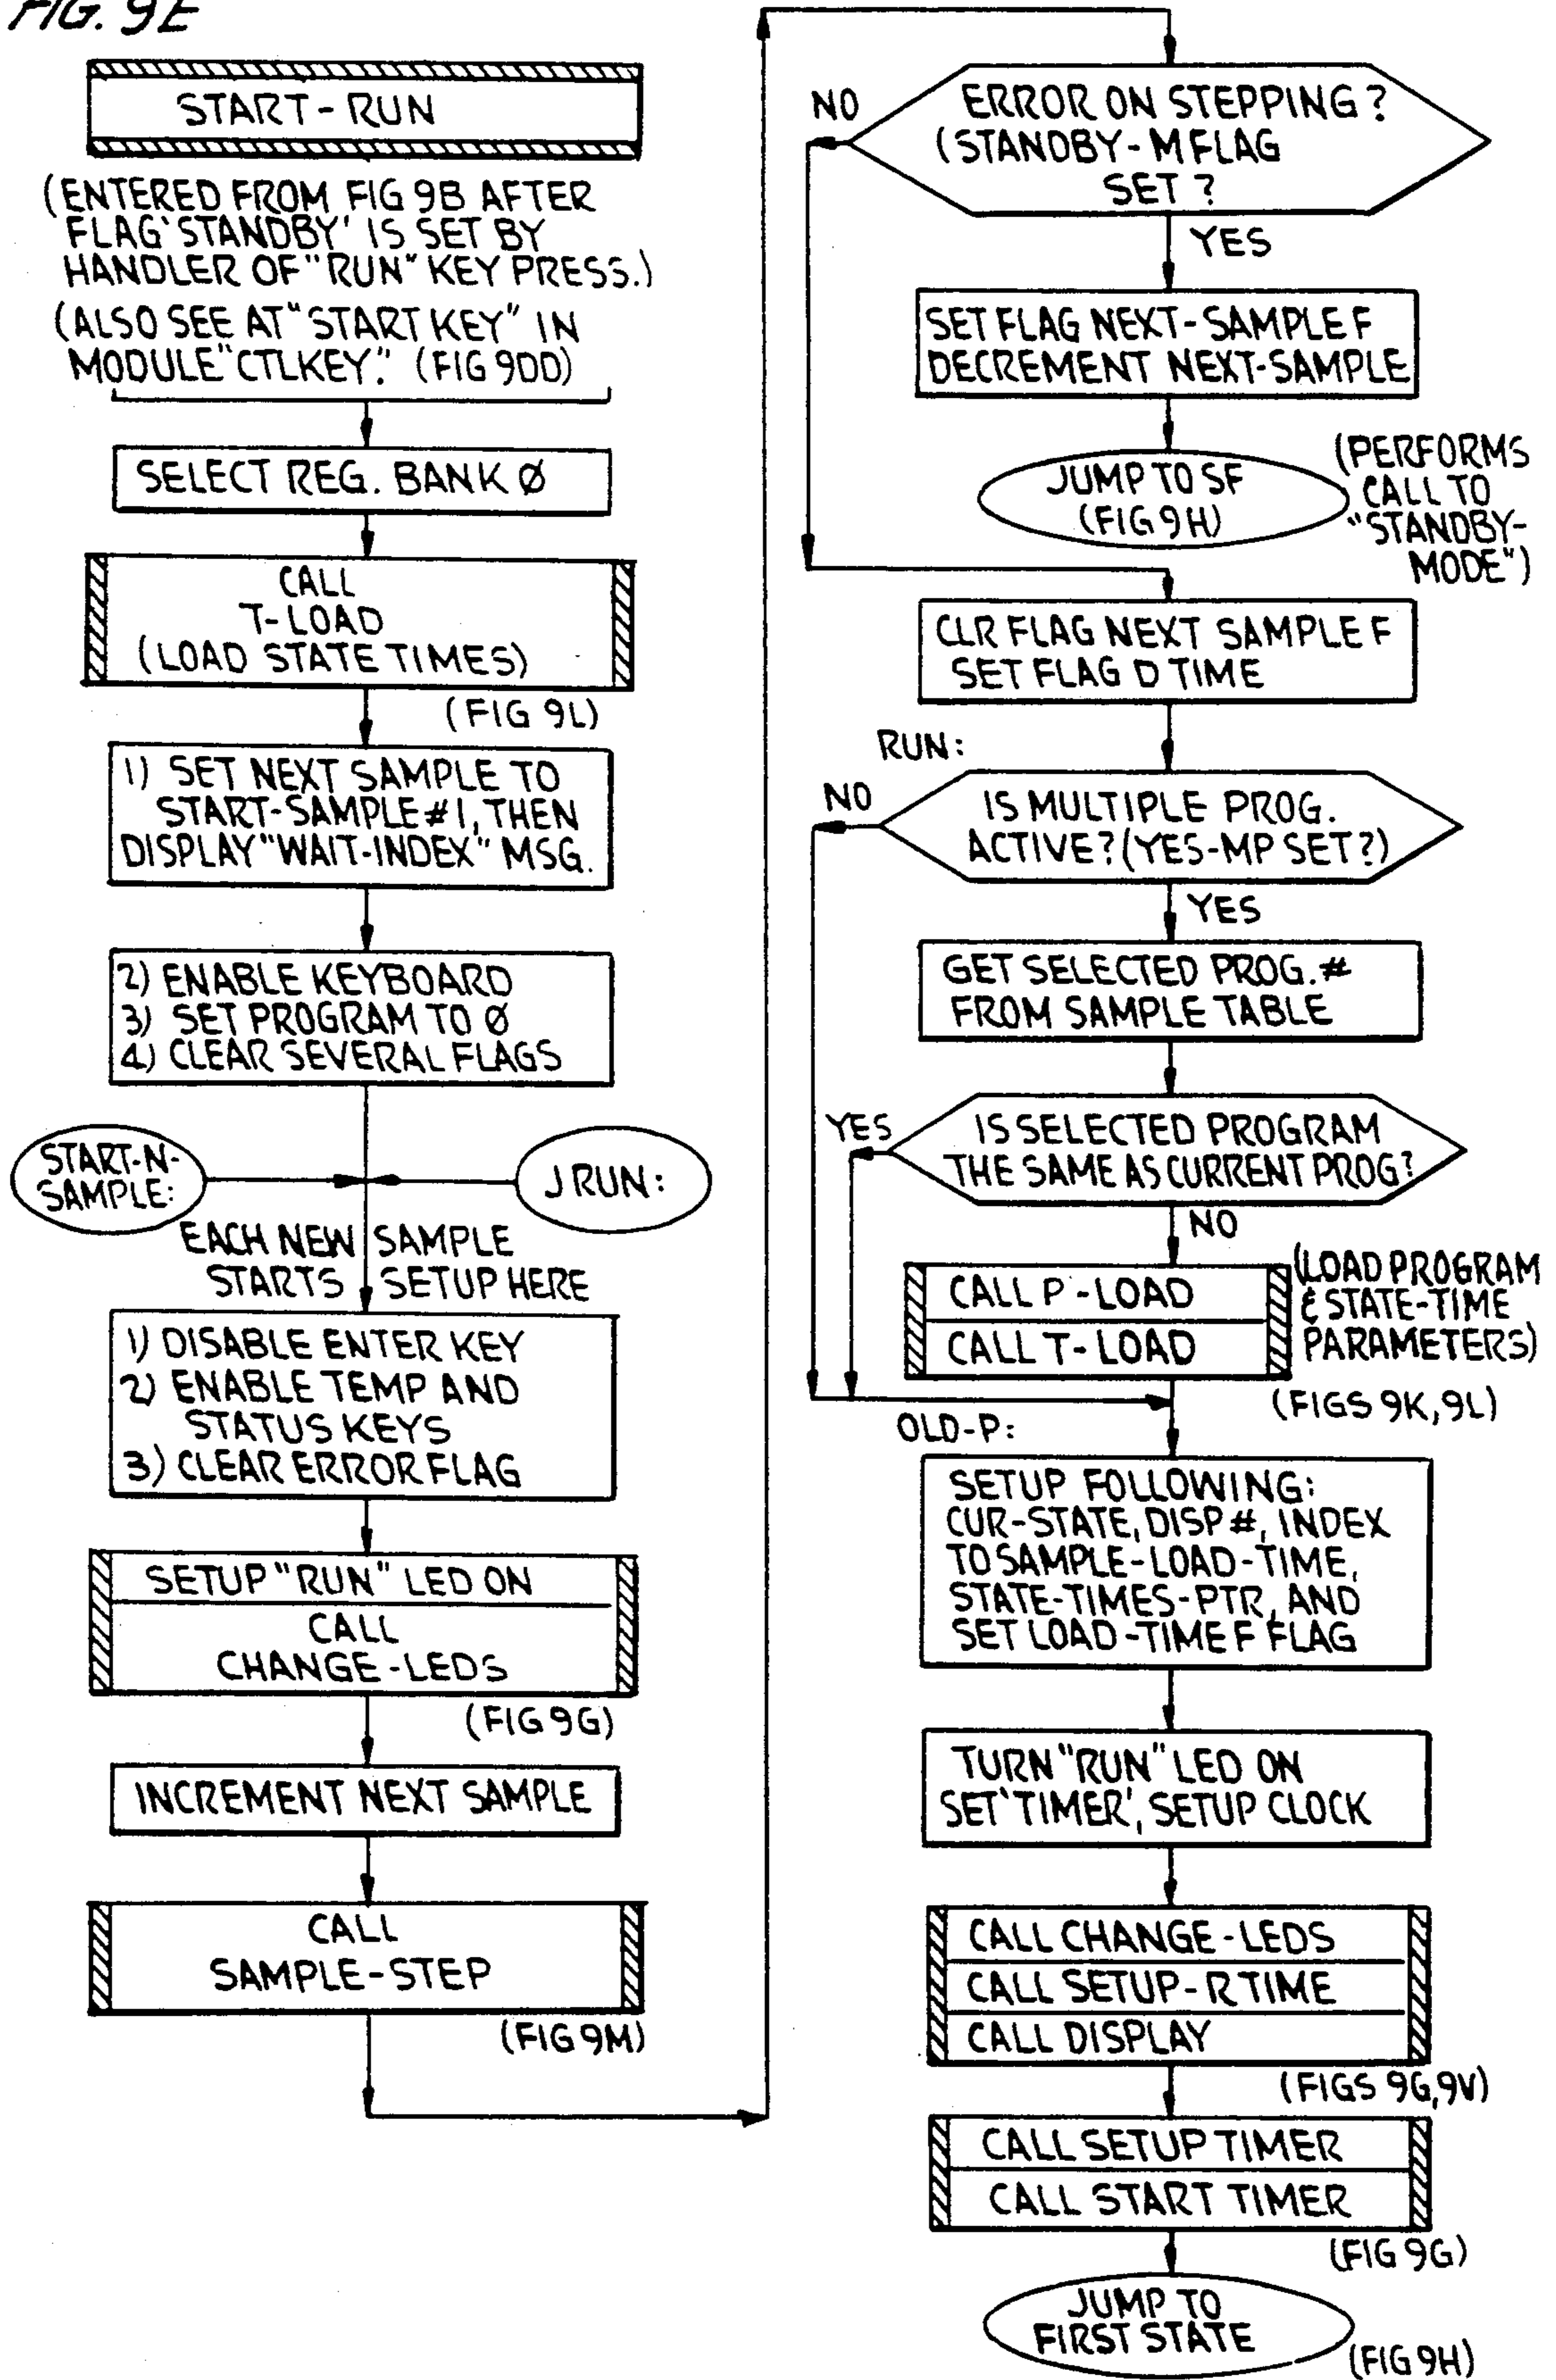 FIG. 9E
START-RUN
(ENTERED FROM FIG 9B AFTER
FLAG 'STANDBY' IS SET BY
HANDLER OF "RUN" KEY PRESS.)
(ALSO SEE AT "START KEY" IN
MODULE "CTLKEY." (FIG 9DD)
SELECT REG. BANK Ø
CALL
T-LOAD
(LOAD STATE TIMES)
(FIG 9L)
1) SET NEXT SAMPLE TO
START-SAMPLE #1, THEN
DISPLAY "WAIT-INDEX" MSG.
2) ENABLE KEYBOARD
3) SET PROGRAM TO Ø
4) CLEAR SEVERAL FLAGS
START-N-
SAMPLE:
J RUN:
EACH NEW SAMPLE
STARTS SETUP HERE
1) DISABLE ENTER KEY
2) ENABLE TEMP AND
STATUS KEYS
3) CLEAR ERROR FLAG
SETUP "RUN" LED ON
CALL
CHANGE-LEDS
(FIG 9G)
INCREMENT NEXT SAMPLE
CALL
SAMPLE-STEP
(FIG 9M)
ERROR ON STEPPING?
(STANDBY-M FLAG
SET?
NO
YES
SET FLAG NEXT-SAMPLE F
DECREMENT NEXT-SAMPLE
JUMP TO SF
(FIG 9H)
(PERFORMS
CALL TO
"STANDBY-
MODE")
CLR FLAG NEXT SAMPLE F
SET FLAG D TIME
RUN:
NO
IS MULTIPLE PROG.
ACTIVE? (YES-MP SET?)
YES
GET SELECTED PROG. #
FROM SAMPLE TABLE
YES
IS SELECTED PROGRAM
THE SAME AS CURRENT PROG?
NO
CALL P-LOAD
CALL T-LOAD
(LOAD PROGRAM
& STATE-TIME
PARAMETERS)
(FIGS 9K, 9L)
OLD-P:
SETUP FOLLOWING:
CUR-STATE, DISP #, INDEX
TO SAMPLE-LOAD-TIME,
STATE-TIMES-PTR, AND
SET LOAD-TIME F FLAG
TURN "RUN" LED ON
SET 'TIMER', SETUP CLOCK
CALL CHANGE-LEDS
CALL SETUP-R TIME
CALL DISPLAY
(FIGS 9G, 9V)
CALL SETUP TIMER
CALL START TIMER
(FIG 9G)
JUMP TO
FIRST STATE
(FIG 9H)